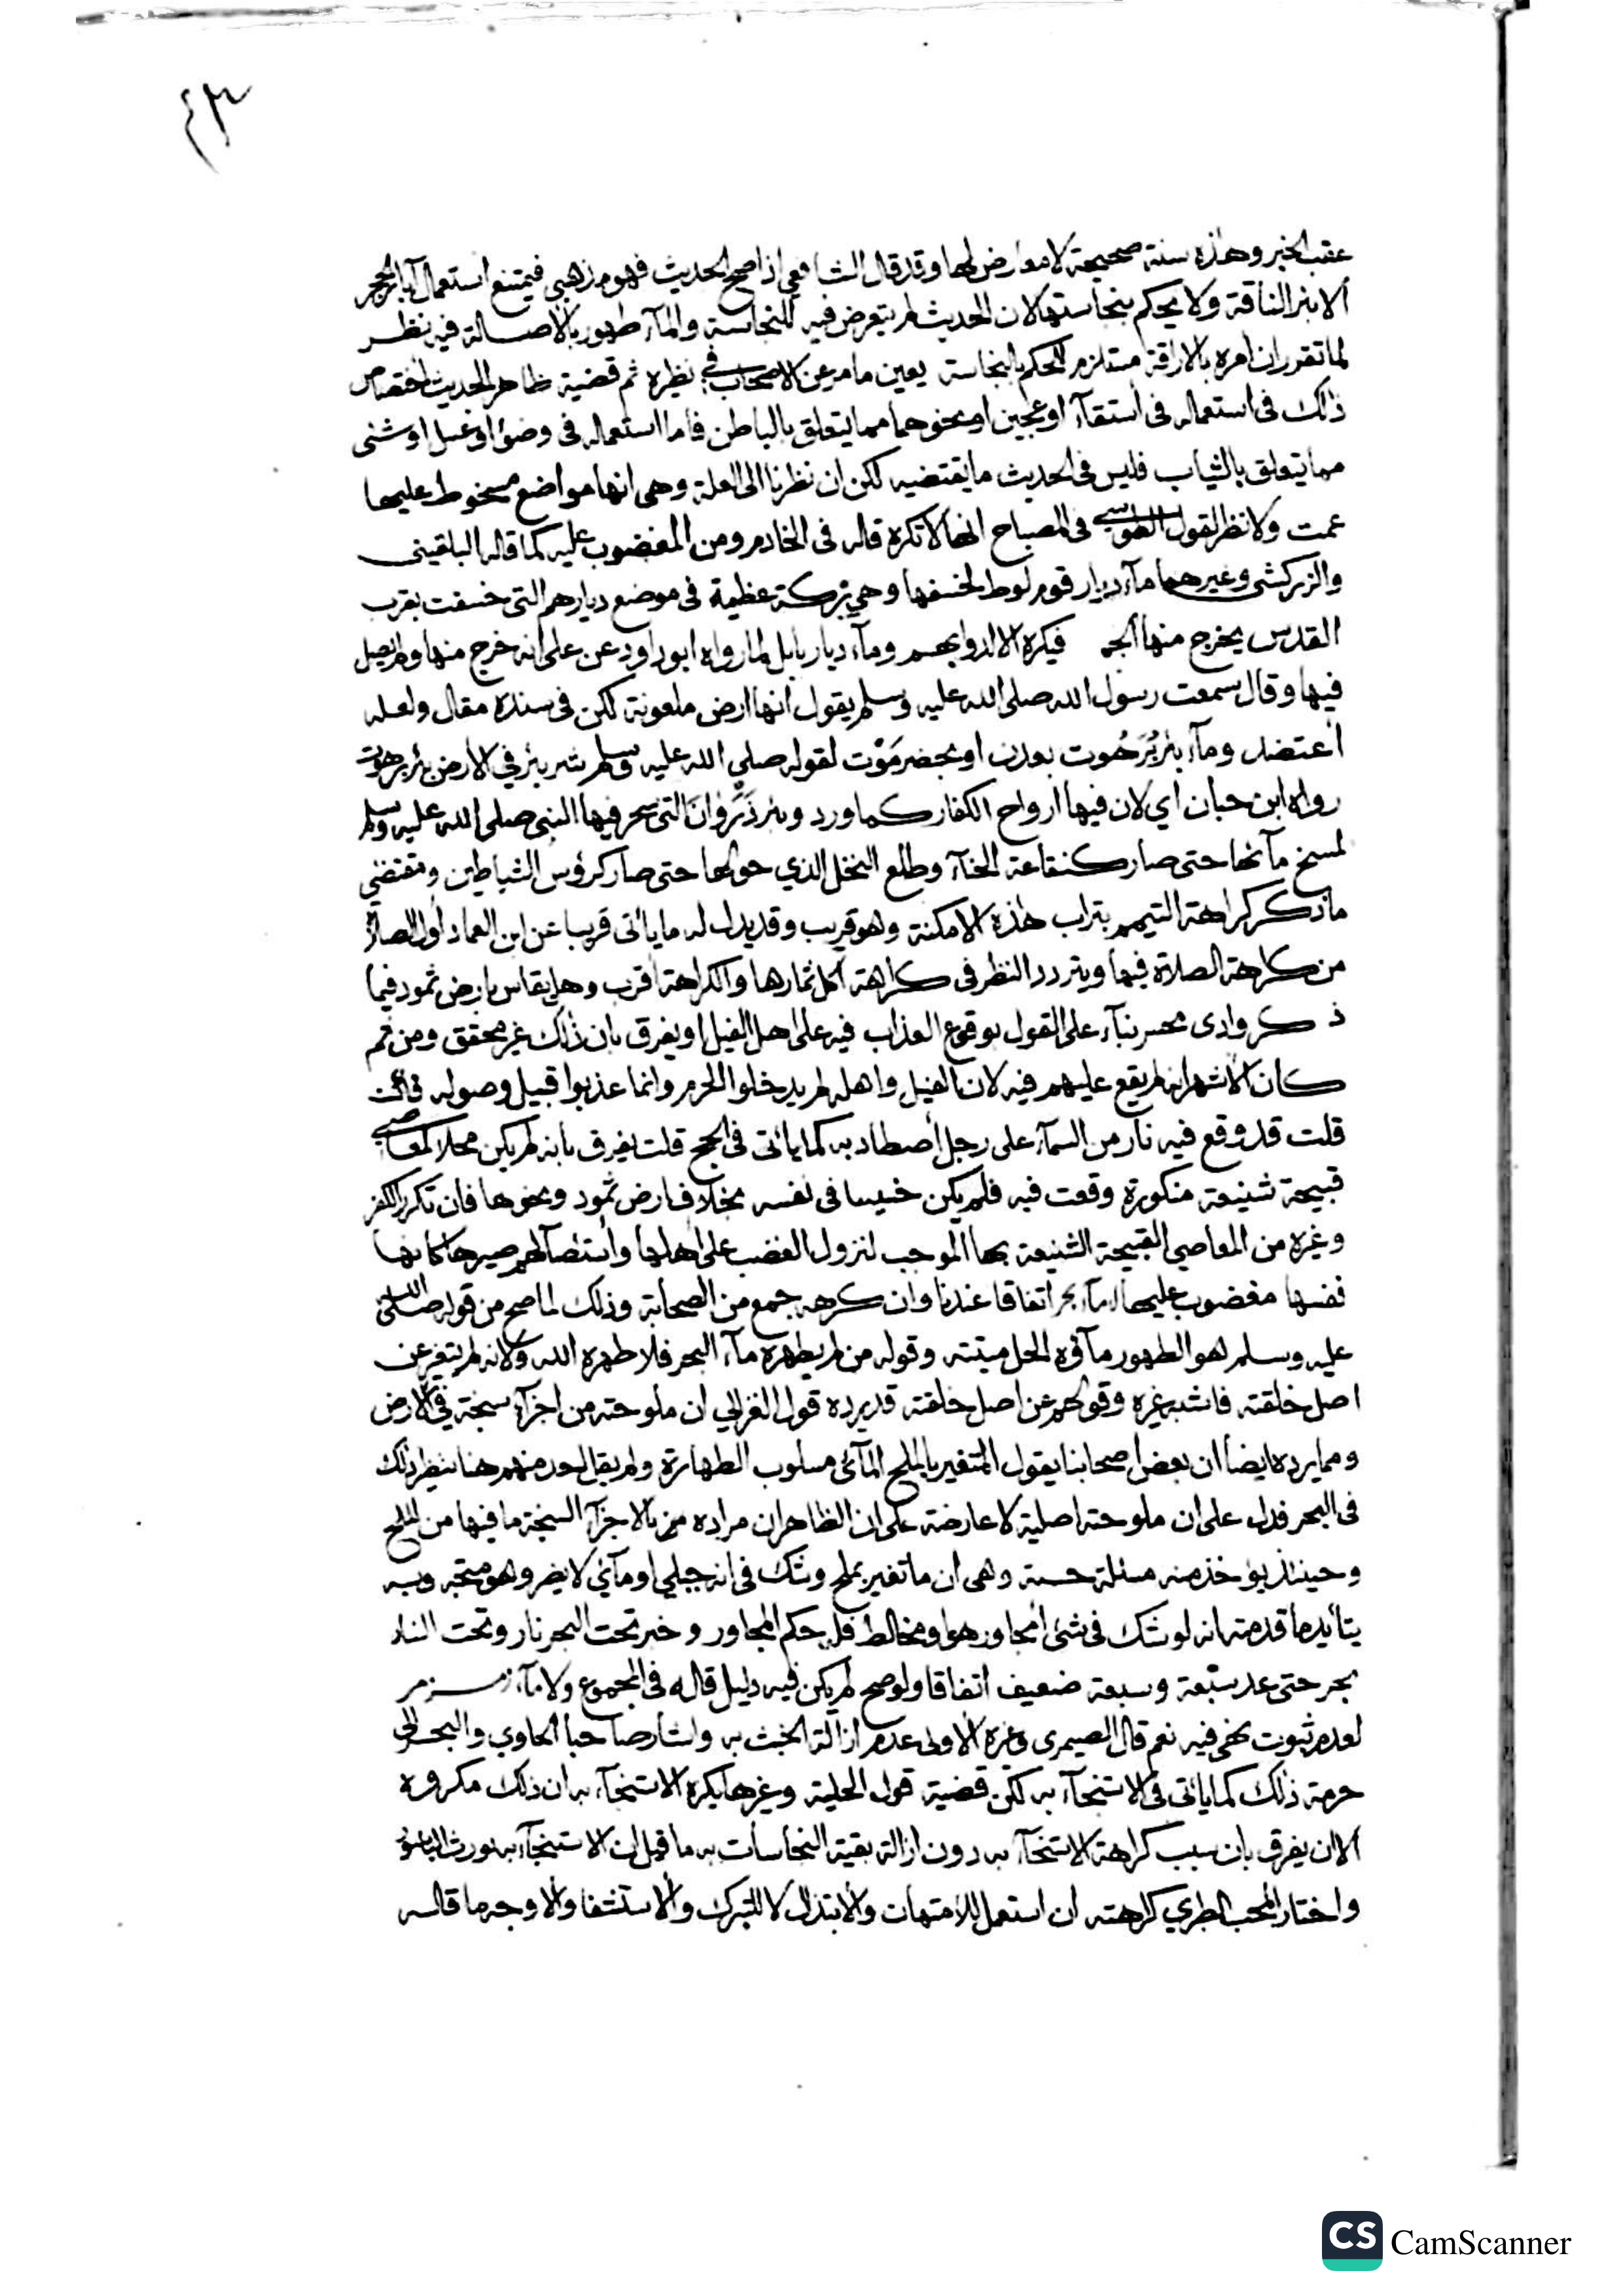 ٤٣
عقب الخبر وهذه سنة صحيحة لا معارض لها وقد قال الشافعي اذا صح الحديث فهو مذهبي فيمتنع استعمال آبار الحجر
الا بئر الناقة ولا يحكم بنجاستها لان الحديث لم يتعرض فيه للنجاسة والمآء طهور بالاصالة فيه نظر
لما تقرر ان امره بالاراقة مستلزم للحكم بالنجاسة يعين ما مر عن الاصحاب في نظيره ثم قضية ظاهر الحديث اختصاص
ذلك في استعماله في استقآء او عجين او نحوهما مما يتعلق بالباطن فاما استعماله في وضؤ او غسل او شئ
مما يتعلق بالثياب فليس في الحديث ما يقتضيه لكن ان نظرنا الى العلة وهي انها مواضع مسخوط عليها
عمت ولا نظر لقول الطوسي في المصباح انها لا تكره قاله في الخادم ومن المغضوب عليه كما قاله البلقيني
والزركشي وغيرهما مآء ديار قوم لوط لخسفها وهي بركة عظيمة في موضع ديارهم التي خسفت بقرب
القدس يخرج منها الحمر فيكره الا لدوابهم ومآء ديار بابل لما رواه ابو داود عن علي انه خرج منها ولم يصل
فيها وقال سمعت رسول الله صلى الله عليه وسلم يقول انها ارض ملعونة لكن في سنده مقال ولعله
اعتضد ومآء بئر بَرَهُوت بعدن او بحضرمَوْت لقوله صلى الله عليه وسلم شر بئر في الارض بئر برهوت
رواه ابن حبان اي لان فيها ارواح الكفار كما ورد وبئر ذَرْوَانَ التي سحر فيها النبي صلى الله عليه وسلم
لمسخ مآئها حتى صار كنقاعة الحنآء وطلع النخل الذي حولها حتى صار كرؤس الشياطين ومقتضى
ما ذكر كراهة التيمم بتراب هذه الامكنة وهو قريب وقد يدل له ما ياتي قريبا عن ابن العماد اول الصلاة
من كراهة الصلاة فيها ويتردد النظر في كراهة اكل ثمارها والكراهة اقرب وهل يقاس بارض ثمود فيما
ذكر وادى محسر بنآء على القول بوقوع العذاب فيه على اهل الفيل او يفرق بان ذلك غير محقق ومن ثم
كان الاشهر انه لم يقع عليهم فيه لان الفيل واهله لم يدخلوا الحرم وانما عذبوا قبيل وصوله فان
قلت قد وقع فيه نار من السمآء على رجل اصطاد به كما ياتي في الحج قلت يفرق بانه لم يكن محلا لمعاصي
قبيحة شنيعة متكررة وقعت فيه فلم يكن خبيثا في نفسه بخلاف ارض ثمود ونحوها فان تكرر الكفر
وغيره من المعاصي القبيحة الشنيعة بها الموجب لنزول الغضب على اهلها واستئصالهم صيرها كانها
نفسها مغضوب عليها لا مآء بحر اتفاقا عندنا وان كرهه جمع من الصحابة وذلك لما صح من قوله صلى الله
عليه وسلم هو الطهور مآؤه الحل ميتته وقوله من لم يطهره مآء البحر فلا طهره الله ولانه لم يتغير عن
اصل خلقته فاشبه غيره وقولهم عن اصل خلقته قد يرده قول الغزالي ان ملوحته من اجزآء سبخة في الارض
ومما يرده ايضا ان بعض اصحابنا يقول المتغير بالملح المآئي مسلوب الطهارة ولم يقل احد منهم هنا بنظير ذلك
في البحر فدل على ان ملوحته اصلية لا عارضة على ان الظاهر ان مراده من بالاجزآء السبخة ما فيها من الملح
وحينئذ يؤخذ منه مسئلة حسنة وهي ان ما تغير بملح وشك في انه جبلي او مآئي لا يضر وهو متجه وبه
يتايد ما قدمته انه لو شك في شئ امجاور هو او مخالط فله حكم المجاور وخبر تحت البحر نار وتحت النار
بحر حتى عد سبعة وسبعة ضعيف اتفاقا ولو صح لم يكن فيه دليل قاله في المجموع ولا مآء زمزم
لعدم ثبوت نهي فيه نعم قال الصيمري وغيره الاولى عدم ازالة الخبث به واشار صاحبا الحاوي والبحر الى
حرمة ذلك كما ياتي في الاستنجآء به لكن قضية قول الحلية وغيرها يكره الاستنجآء به ان ذلك مكروه
الا ان يفرق بان سبب كراهة الاستنجآء به دون ازالة بقية النجاسات به ما قيل ان الاستنجآء به يورث الباسور
واختار المحب الطبري كراهته ان استعمل للامتهان والابتذال لا للتبرك والاستشفا والاوجه ما قاله
CS CamScanner